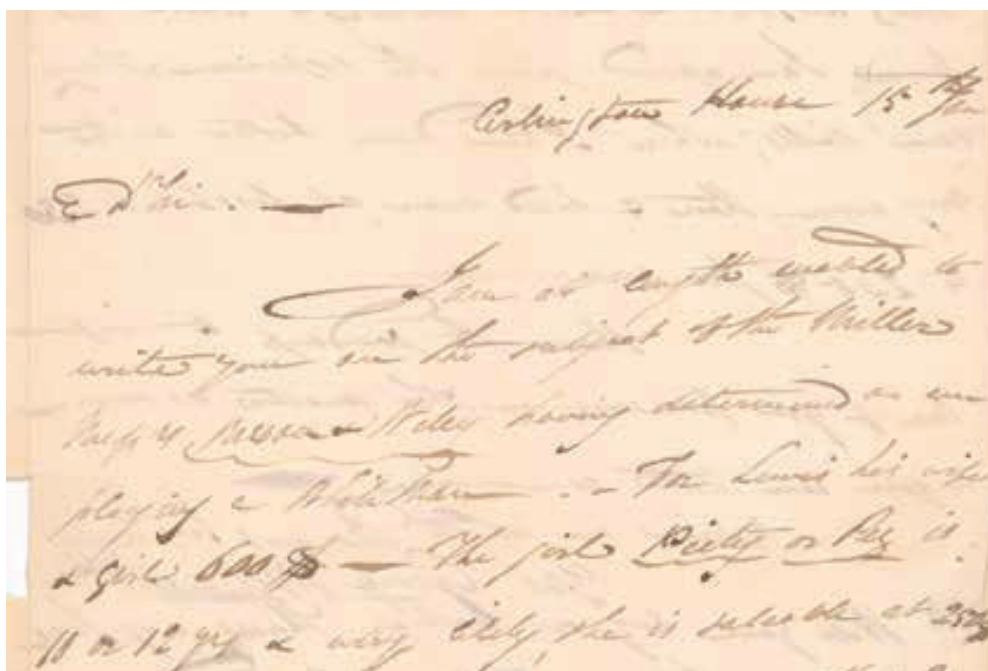 Arlington House 15 Jan
D Sir. —
I am at length enabled to
write you on the subject of the Miller
having determined on em
ploying a White Man — . – For Lewis his wife
& girl 600 $ — The girl or Peg is
11 or 12 yrs & very likely, she is saleable at